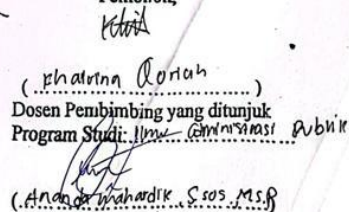 Pemohon,
( Khairina Qoriah )
Dosen Pembimbing yang ditunjuk
Program Studi: Ilmu administrasi publik
(Ananda Mahardik, S.sos., M.S.P